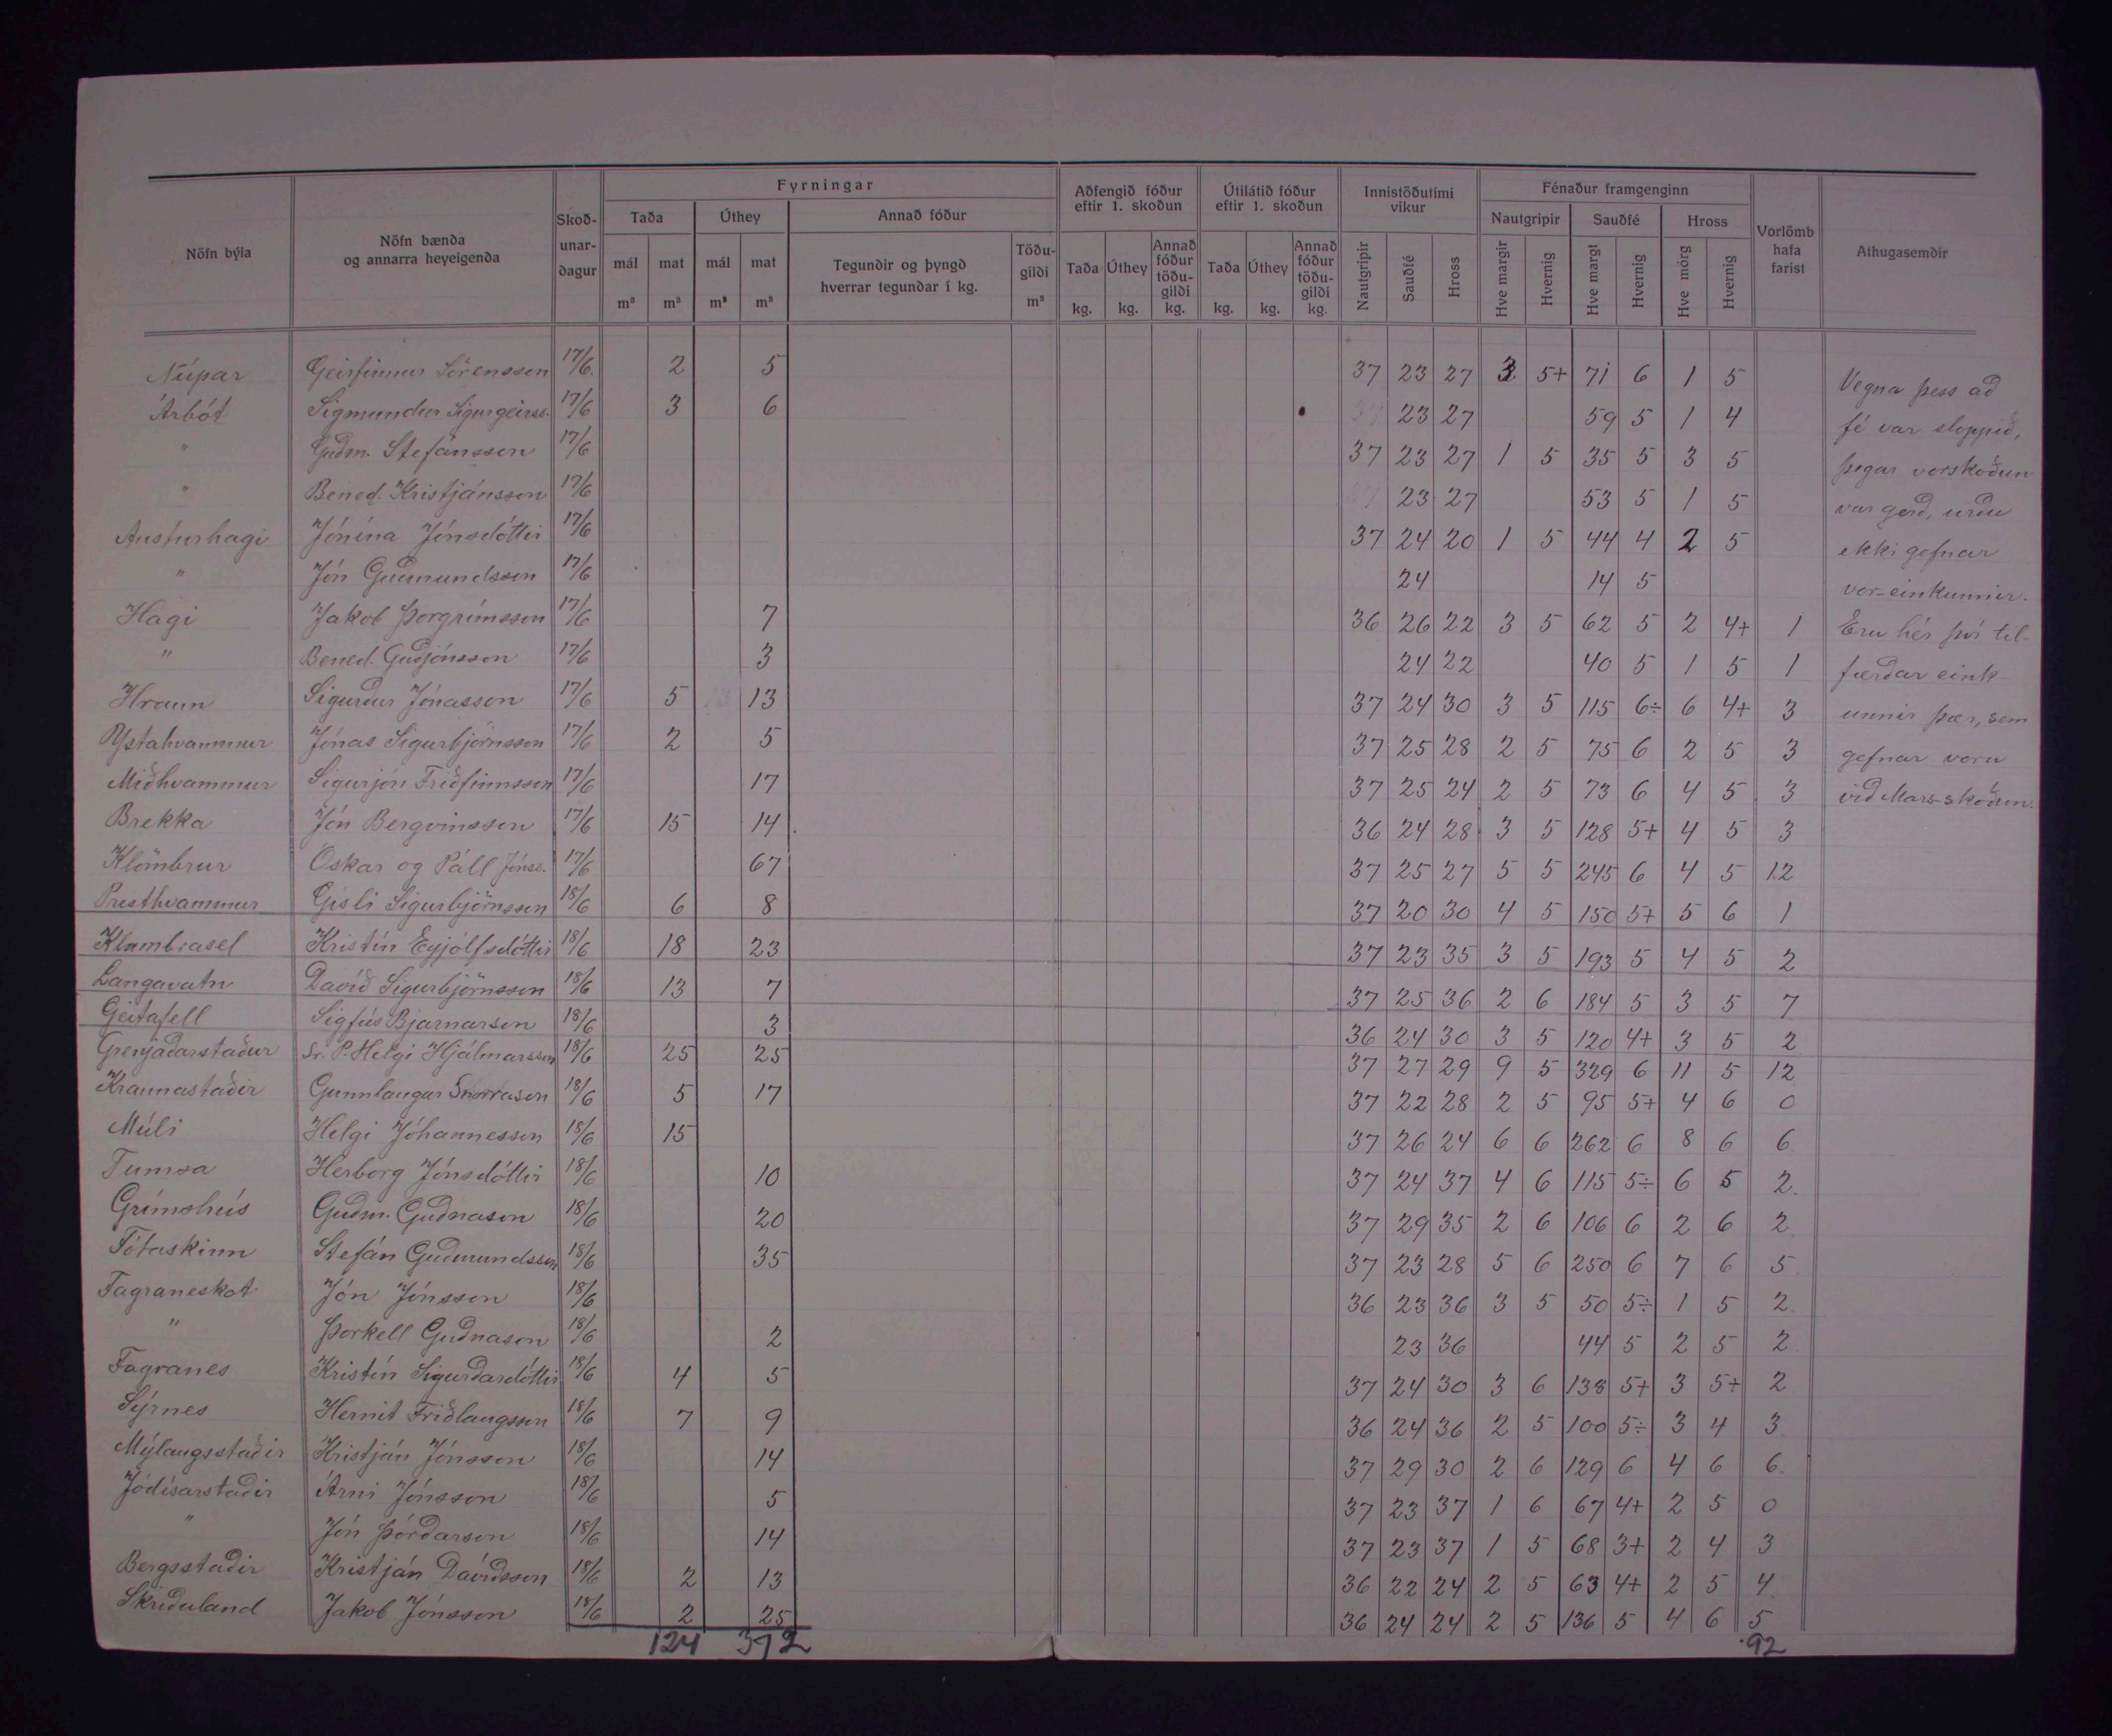 Fyrningar
Aðfengið fóður eftir 1. skoðun
Útilátið fóður eftir 1. skoðun
Innistöðutími vikur
Fénaður framgenginn
Nöfn býla
Nöfn bænda og annarra heyeigenda
Skoð-unar-dagur
Taða
Úthey
Annað fóður
Nautgripir
Sauðfé
Hross
Vorlömb hafa farist
Athugasemdir
mál m³ mat m³ mál m³ mat m³
Tegundir og þyngd hverrar tegundar í kg.
Töðu-gildi m³
Taða kg. Úthey kg. Annað fóður töðu-gildi kg.
Taða kg. Úthey kg. Annað fóður töðu-gildi kg.
Nautgripir Sauðfé Hross
Hve margir Hvernig Hve margt Hvernig Hve mörg Hvernig
Núpar Geirfinnur Sörensson 17/6. 2 5 37 23 27 3 5+ 71 6 1 5 Vegna þess að
Árbót Sigmundur Sigurgeirss. 17/6 3 6 23 27 59 5 1 4 fé var sloppið,
" Guðm. Stefánsson 17/6 37 23 27 1 5 35 5 3 5 þegar vorskoðun
" Bened. Kristjánsson 17/6 23 27 53 5 1 5 var gerð, urðu
Austurhagi Jónína Jónsdóttir 17/6 37 24 20 1 5 44 4 2 5 ekki gefnar
" Jón Guðmundsson 17/6 24 14 5 vor-einkunnir.
Hagi Jakob Þorgrímsson 17/6 7 36 26 22 3 5 62 5 2 4+ 1 Eru hér því til-
" Bened. Guðjónsson 17/6 3 24 22 40 5 1 5 1 færðar eink-
Hraun Sigurður Jónasson 17/6 5 13 37 24 30 3 5 115 6÷ 6 4+ 3 unnir þær, sem
Ystahvammur Jónas Sigurbjörnsson 17/6 2 5 37 25 28 2 5 75 6 2 5 3 gefnar voru
Miðhvammur Sigurjón Friðfinnsson 17/6 17 37 25 24 2 5 73 6 4 5 3 við Mars-skoðun.
Brekka Jón Bergvinsson 17/6 15 14 36 24 28 3 5 128 5+ 4 5 3
Klömbrur Óskar og Páll Jónss. 17/6 67 37 25 27 5 5 245 6 4 5 12
Presthvammur Gísli Sigurbjörnsson 18/6 6 8 37 20 30 4 5 150 5+ 5 6 1
Klambrasel Kristín Eyjólfsdóttir 18/6 18 23 37 23 35 3 5 193 5 4 5 2
Langavatn Davíð Sigurbjörnsson 18/6 13 7 37 25 36 2 6 184 5 3 5 7
Geitafell Sigfús Bjarnarson 18/6 3 36 24 30 3 5 120 4+ 3 5 2
Grenjaðarstaður Sr. Þ. Helgi Hjálmarsson 18/6 25 25 37 27 29 9 5 329 6 11 5 12
Kraunastaðir Gunnlaugur Snorrason 18/6 5 17 37 22 28 2 5 95 5+ 4 6 0
Múli Helgi Jóhannesson 18/6 15 37 26 24 6 6 262 6 8 6 6
Tumsa Herborg Jónsdóttir 18/6 10 37 24 37 4 6 115 5÷ 6 5 2.
Grímshús Guðm. Guðnason 18/6 20 37 29 35 2 6 106 6 2 6 2
Fótaskinn Stefán Guðmundsson 18/6 35 37 23 28 5 6 250 6 7 6 5
Fagraneskot Jón Jónsson 18/6 36 23 36 3 5 50 5÷ 1 5 2
" Þorkell Guðnason 18/6 2 23 36 44 5 2 5 2
Fagranes Kristín Sigurðardóttir 18/6 4 5 37 24 30 3 6 138 5+ 3 5+ 2
Sýrnes Hernit Friðlaugsson 18/6 7 9 36 24 36 2 5 100 5÷ 3 4 3
Mýlaugsstaðir Kristján Jónsson 18/6 14 37 29 30 2 6 129 6 4 6 6.
Jódísarstaðir Árni Jónsson 18/6 5 37 23 37 1 6 67 4+ 2 5 0
" Jón Þórðarson 18/6 14 37 23 37 1 5 68 3+ 2 4 3
Bergsstaðir Kristján Davíðsson 18/6 2 13 36 22 24 2 5 63 4+ 2 5 4
Skriðuland Jakob Jónsson 18/6 2 25 36 24 24 2 5 136 5 4 6 5
124 372 92